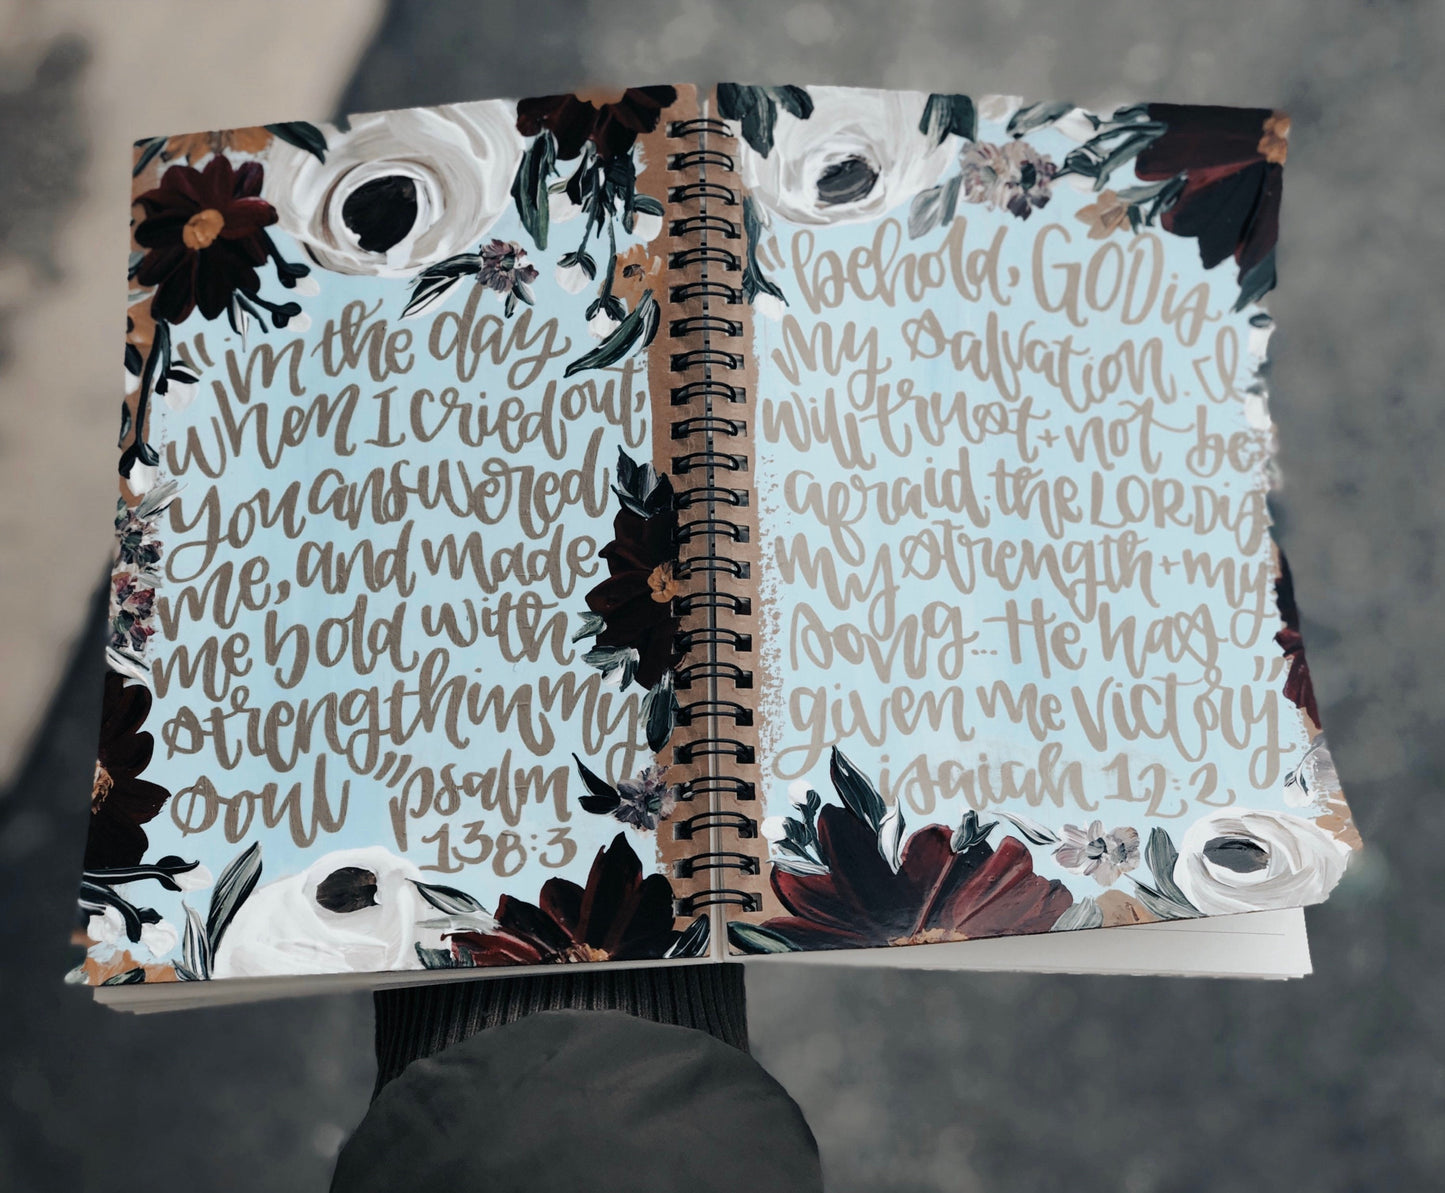 "in the day
when I cried out,
you answered
me, and made
me bold with
strength in my
soul" psalm
138:3
"behold, GOD is
my salvation. I
will trust + not be
afraid. the LORD is
my strength + my
song... He has
given me victory"
isaiah 12:2